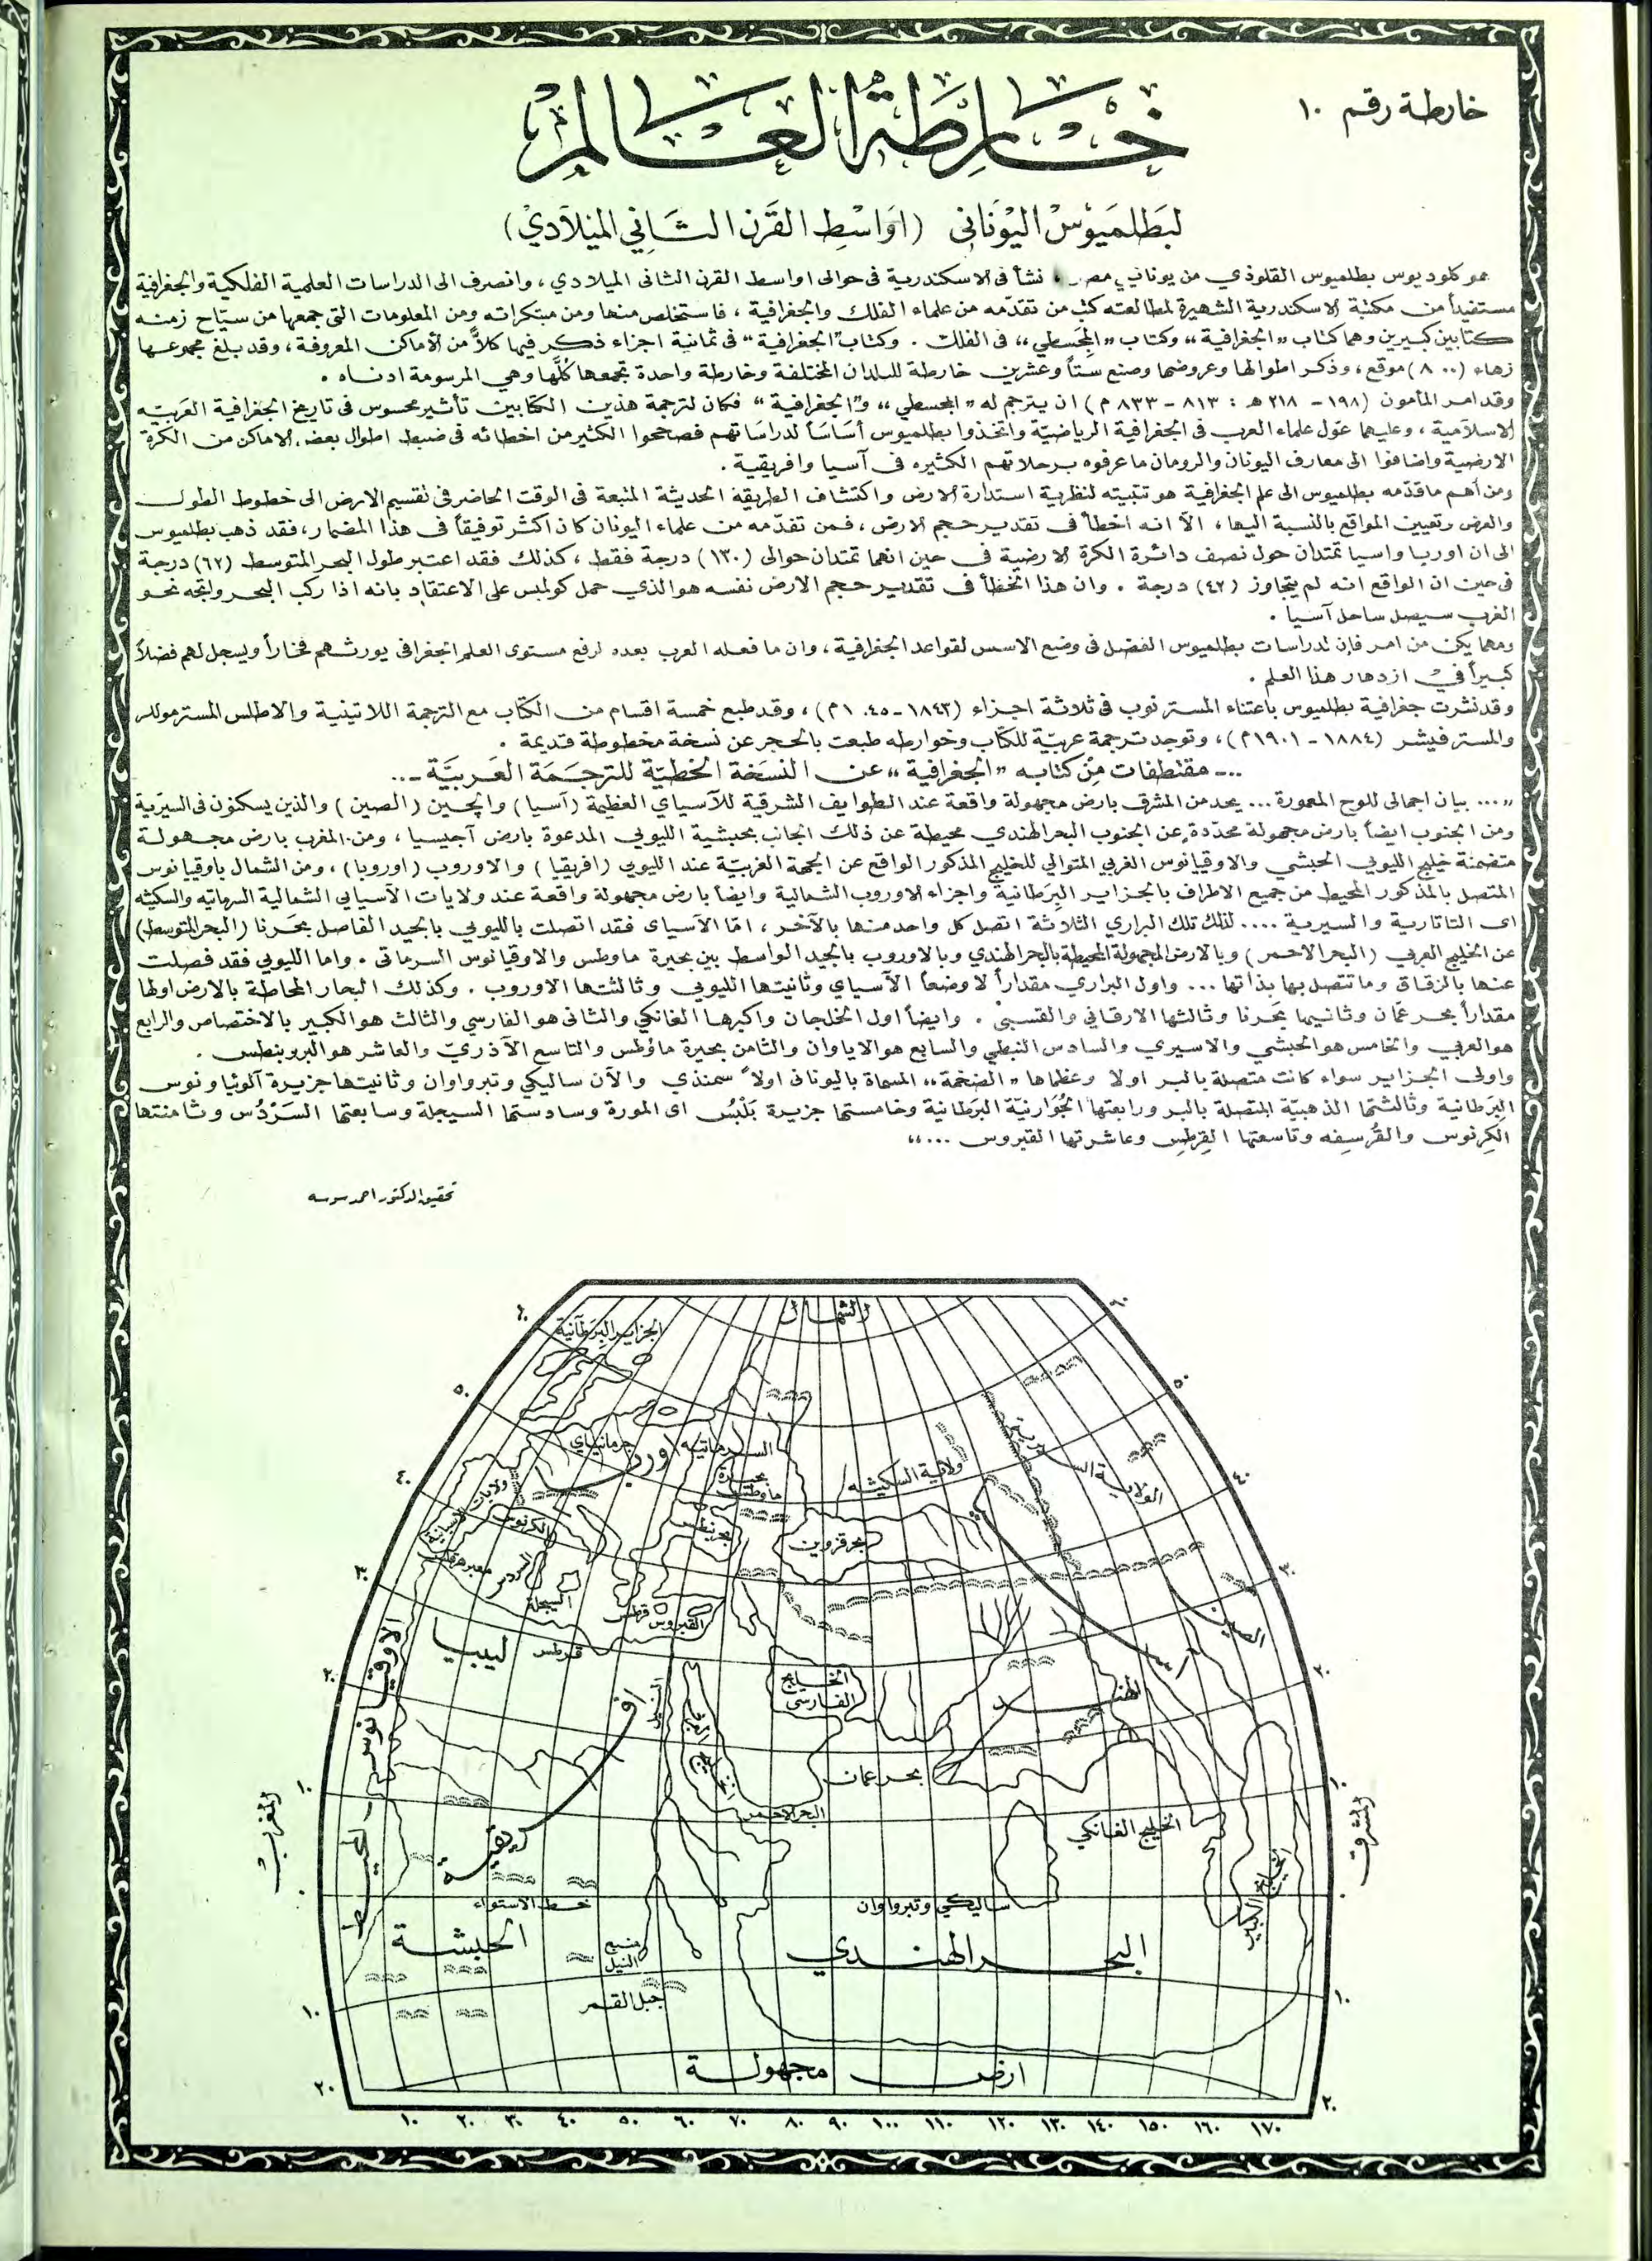 خارطة رقم ١٠
خارطة العالم
لبطلميوس اليوناني (اواسط القرن الثاني الميلادي)
هو كلوديوس بطلميوس القلوذي من يوناني مصر، نشأ في الاسكندرية في حوالي اواسط القرن الثاني الميلادي، وانصرف الى الدراسات العلمية الفلكية والجغرافية
مستفيداً من مكتبة الاسكندرية الشهيرة لمطالعته كتب من تقدّمه من علماء الفلك والجغرافية، فاستخلص منها ومن مبتكراته ومن المعلومات التي جمعها من سيّاح زمنه
كتابين كبيرين وهما كتاب «الجغرافية» وكتاب «المجسطي» في الفلك. وكتاب "الجغرافية" في ثمانية اجزاء ذكر فيها كلاً من الأماكن المعروفة، وقد بلغ مجموعها
زهاء (٨٠٠٠) موقع، وذكر اطوالها وعروضها وصنع ستاً وعشرين خارطة للبلدان المختلفة وخارطة واحدة تجمعها كلّها وهي المرسومة ادناه.
وقد امر المأمون (١٩٨ - ٢١٨ هـ : ٨١٣ - ٨٣٣ م) ان يترجم له «المجسطي» و"الجغرافية" فكان لترجمة هذين الكتابين تأثير محسوس في تاريخ الجغرافية العربيّة
الاسلامية، وعليهما عوّل علماء العرب في الجغرافية الرياضيّة واتخذوا بطلميوس أساساً لدراساتهم فصححوا الكثير من اخطائه في ضبط اطوال بعض الاماكن من الكرة
الارضية واضافوا الى معارف اليونان والرومان ما عرفوه برحلاتهم الكثيره في آسيا وافريقية.
ومن أهم ما قدّمه بطلميوس الى علم الجغرافية هو تثبيته لنظرية استدارة الارض واكتشاف الطريقة الحديثة المتبعة في الوقت الحاضر في تقسيم الارض الى خطوط الطول
والعرض وتعيين المواقع بالنسبة اليها، الّا انه اخطأ في تقدير حجم الارض، فمن تقدّمه من علماء اليونان كان اكثر توفيقاً في هذا المضمار، فقد ذهب بطلميوس
الى ان اوربا واسيا تمتدان حول نصف دائرة الكرة الارضية في حين انهما تمتدان حوالي (١٣٠) درجة فقط، كذلك فقد اعتبر طول البحر المتوسط (٦٢) درجة
في حين ان الواقع انه لم يتجاوز (٤٢) درجة. وان هذا الخطأ في تقدير حجم الارض نفسه هو الذي حمل كولمبس على الاعتقاد بانه اذا ركب البحر واتجه نحو
الغرب سيصل ساحل آسيا.
ومهما يكن من امر فإن لدراسات بطلميوس الفضل في وضع الاسس لقواعد الجغرافية، وان ما فعله العرب بعده لرفع مستوى العلم الجغرافي يورثهم فخاراً ويسجل لهم فضلاً
كبيراً في ازدهار هذا العلم.
وقد نشرت جغرافية بطلميوس باعتناء المستر نوب في ثلاثة اجزاء (١٨٤٣ - ١٨٤٥ م)، وقد طبع خمسة اقسام من الكتاب مع الترجمة اللاتينية والاطلس المستر مولر
والمستر فيشر (١٨٨٤ - ١٩٠١ م)، وتوجد ترجمة عربيّة للكتاب وخوارطه طبعت بالحجر عن نسخة مخطوطة قديمة.
... - مقتطفات من كتابه «الجغرافية» عن النسخة الخطيّة للترجمة العربيّة - ...
«... بيان اجمالي للوح المعمورة ... يحد من المشرق بارض مجهولة واقعة عند الطوايف الشرقية للآسياي العظيمة (آسيا) والچين (الصين) والذين يسكنون في السيرية
ومن الجنوب ايضاً بارض مجهولة محدّدة عن الجنوب البحر الهندي محيطة عن ذلك الجانب بحبشية الليوبي المدعوة بارض آجيسيا، ومن المغرب بارض مجهولة
متضمنة خليج الليوبي الحبشي والاوقيانوس الغربي المتوالي للخليج المذكور الواقع عن الجهة الغربيّة عند الليوبي (افريقيا) والاوروب (اوروبا)، ومن الشمال باوقيانوس
المتصل بالمذكور المحيط من جميع الاطراف بالجزاير البرطانية واجزاء الاوروب الشمالية وايضاً بارض مجهولة واقعة عند ولايات الآسيايي الشمالية السرماتيه والسكيثه
اى التاتارية والسيرية .... لذلك تلك البراري الثلاثة اتصل كل واحد منها بالآخر، امّا الآسياى فقد اتصلت بالليوبي بالجيد الفاصل بحرنا (البحر المتوسط)
عن الخليج العربي (البحر الاحمر) وبالارض المجهولة المحيطة بالبحر الهندي وبالاوروب بالجيد الواسط بين بحيرة ماوطس والاوقيانوس السرماتى. واما الليوبي فقد فصلت
عنها بالزقاق وما تتصل بها بذاتها ... واول البراري مقداراً لا وضعاً الآسياي وثانيتها الليوبي وثالثتها الاوروب. وكذلك البحار المحاطة بالارض اولها
مقداراً بحر عمّان وثانيها بحرنا وثالثها الارقاني والقسبى. وايضاً اول الخلجان واكبرها الغانكي والثانى هو الفارسي والثالث هو الكبير بالاختصاص والرابع
هو العربي والخامس هو الحبشي والاسيري والسادس النبطي والسابع هو الاياوان والثامن بحيرة ماؤطس والتاسع الآذريّ والعاشر هو البروبنطس.
واولى الجزاير سواء كانت متصلة بالبر اولا وعظماها «الضخمة» المسماة باليونانى اولاً سمنذي والآن ساليكي وتبرواوان وثانيتها جزيرة آلويا ونوس
البرطانية وثالثتها الذهبيّة المتصلة بالبر ورابعتها الجوارنيّة البرطانية وخامستها جزيرة بلبس اى المورة وسادستها السيجلة وسابعتها السردس وثامنتها
الكرنوس والقرسقه وتاسعتها القرطس وعاشرتها القبروس ...»
تحقيق الدكتور احمد سوسه
الشمال
٦٠
٦٠
الجزاير البرطانية
٥٠
٥٠
جرمانياي
السرماتيه
اوربا
ولاية السكيثه
٤٠
٤٠
بحيرة
ماوطس
ولايات
الكرنوس
بحر نبطس
بحر قزوين
٣٠
٣٠
السردس
السيجلة
قرطس
القبروس
الصين
ليبيا
قرطس
٢٠
٢٠
الخليج
الفارسى
الهند
الخليج العربي
الاوقيانوس المحيط
بحر عمان
١٠
١٠
البحر الاحمر
الخليج الغانكي
المغرب
المشرق
افريقية
الخليج الكبير
٠
٠
خط الاستواء
ساليكي وتبرواوان
الحبشة
منبع
النيل
البحر الهندي
جبل القمر
١٠
١٠
ارض مجهولة
٢٠
٢٠
١٠ ٢٠ ٣٠ ٤٠ ٥٠ ٦٠ ٧٠ ٨٠ ٩٠ ١٠٠ ١١٠ ١٢٠ ١٣٠ ١٤٠ ١٥٠ ١٦٠ ١٧٠